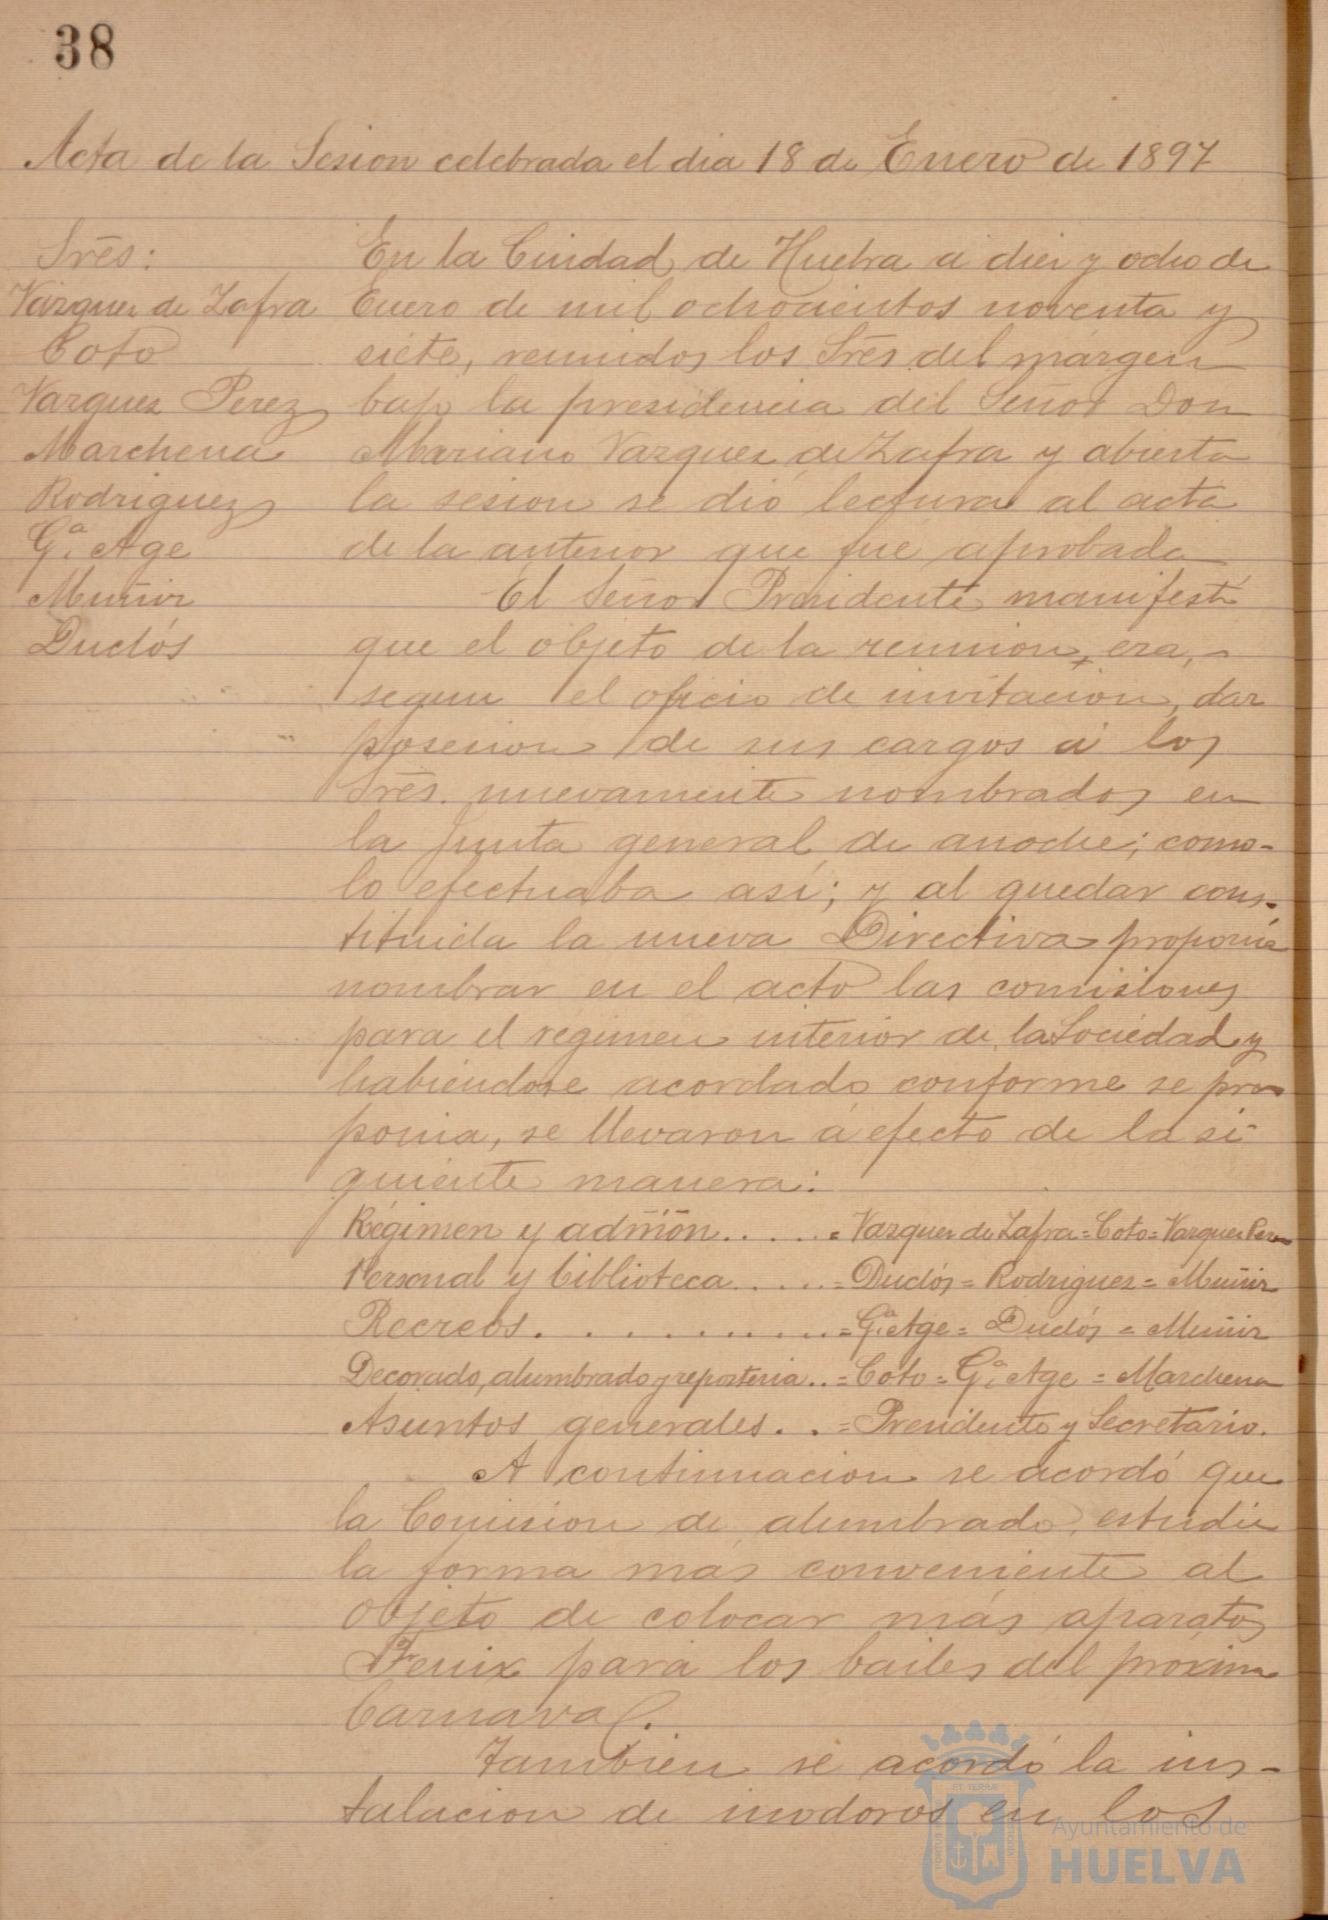 38
Acta de la Sesion celebrada el dia 18 de Enero de 1897
Srēs:
Vazquez de Zafra
Coto
Vazquez Perez
Marchena
Rodriguez
G.ª Age
Muñiz
Duclós
En la Ciudad de Huelva a diez y ocho de
Enero de mil ochocientos noventa y
siete, reunidos los Srēs del márgen
bajo la presidencia del Señor Don
Mariano Vazquez de Zafra y abierta
la sesion se dió lectura al acta
de la anterior que fué aprobada
El Señor Presidente manifestó
que el objeto de la reunion, era,
segun el oficio de invitacion, dar
posesion de sus cargos á los
Srēs. nuevamente nombrados en
la Junta general de anoche; como-
lo efectuaba así; y al quedar cons-
tituida la nueva Directiva proponia
nombrar en el acto las comisiones
para el régimen interior de la Sociedad y
habiéndose acordado conforme se pro-
ponia, se llevaron á efecto de la si-
guiente manera:
Régimen y admōn......= Vazquez de Zafra = Coto = Vazquez Perez
Personal y biblioteca.....= Duclós = Rodriguez = Muñiz
Recreos...........= G.ª Age = Duclós = Muñiz
Decorado, alumbrado y reposteria..= Coto = G.ª Age = Marchena
Asuntos generales..= Presidente y Secretario.
A continuacion se acordó que
la Comision de alumbrado, estudie
la forma más conveniente al
objeto de colocar más aparatos
Fenix para los bailes del próximo
Carnaval.
Tambien se acordó la ins-
talacion de inodoros en los
Ayuntamiento de
HUELVA